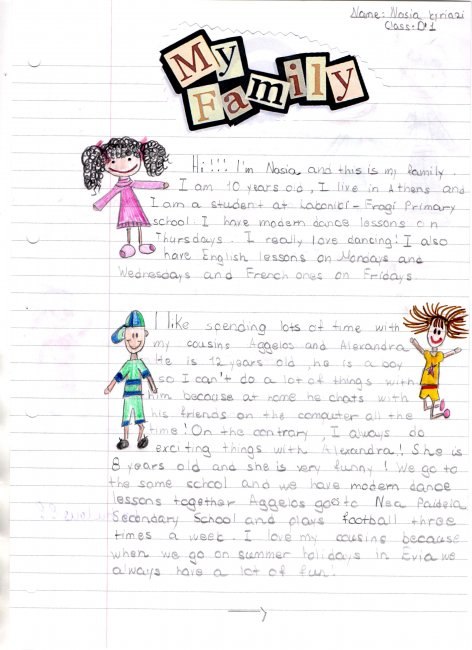 Name: Nasia Kyriazi
Class: D'1
My
Family
Hi!!! I'm Nasia and this is my family.
I am 10 years old, I live in Athens and
I am a student at Laconici - Fragi Primary
school. I have modern dance lessons on
Thursdays. I really love dancing! I also
have English lessons on Mondays and
Wednesdays and French ones on Fridays
I like spending lots of time with
my cousins Aggelos and Alexandra
He is 12 years old, he is a boy
so I can't do a lot of things with
him because at home he chats with
his friends on the computer all the
time! On the contrary, I always do
exciting things with Alexandra! She is
8 years old and she is very funny! We go to
the same school and we have modern dance
lessons together Aggelos goes to Nea Paideia
Secondary School and plays football three
times a week. I love my cousins because
when we go on summer holidays in Evia we
always have a lot of fun!